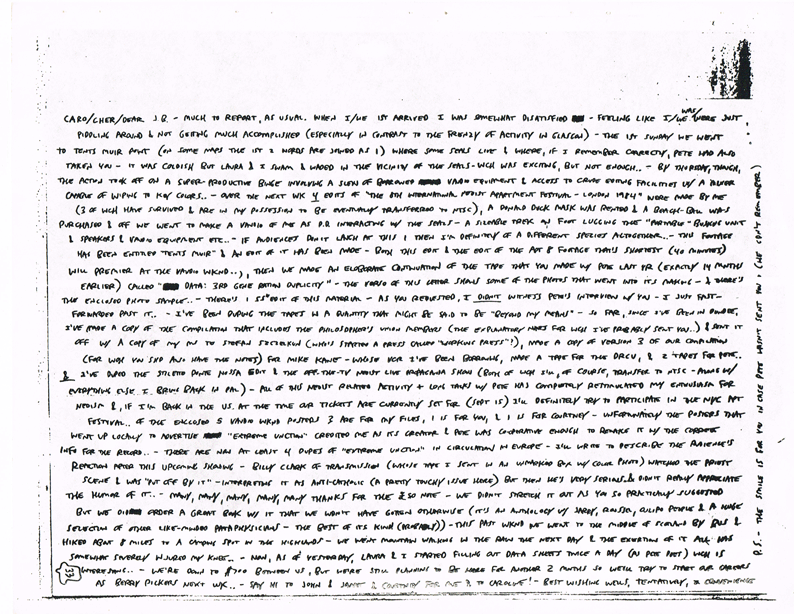 CARO/CHER/DEAR J.B. - MUCH TO REPORT, AS USUAL. WHEN I/WE 1ST ARRIVED I WAS SOMEWHAT DISATISFIED - FEELING LIKE I/WE WAS/WERE JUST
PIDDLING AROUND & NOT GETTING MUCH ACCOMPLISHED (ESPECIALLY IN CONTRAST TO THE FRENZY OF ACTIVITY IN GLASGOW) - THE 1ST SUNDAY WE WENT
TO TENTS MUIR POINT (ON SOME MAPS THE 1ST 2 WORDS ARE JOINED AS 1) WHERE SOME SEALS LIVE & WHERE, IF I REMEMBER CORRECTLY, PETE HAD ALSO
TAKEN YOU - IT WAS COLDISH BUT LAURA & I SWAM & WADED IN THE VICINITY OF THE SEALS - WCH WAS EXCITING, BUT NOT ENOUGH.. - BY THURSDAY, THOUGH,
THE ACTION TOOK OFF ON A SUPER-PRODUCTIVE BINGE INVOLVING A SLEW OF BORROWED VAUDIO EQUIPMENT & ACCESS TO CRUDE EDITING FACILITIES W/ A MIXER
CAPABLE OF WIPING TO KEY COLORS.. - OVER THE NEXT WK 4 EDITS OF "THE 8TH INTERNATIONAL NEOIST APARTMENT FESTIVAL - LONDON 1984" WERE MADE BY ME
(3 OF WCH HAVE SURVIVED & ARE IN MY POSSESSION TO BE EVENTUALLY TRANSFERRED TO NTSC), A DONALD DUCK MASK WAS RENTED & A BEACH-BALL WAS
PURCHASED & OFF WE WENT TO MAKE A VAUDIO OF ME AS D.D. INTERACTING W/ THE SEALS - A SIZABLE TREK ON FOOT LUGGING THE "PORTABLE" UNIT
& SPEAKERS & VAUDIO EQUIPMENT ETC.. - IF AUDIENCES DON'T LAUGH AT THIS 1 THEN I'M DEFINITELY OF A DIFFERENT SPECIES ALTOGETHER.. - THIS FOOTAGE
HAS BEEN ENTITLED "TENTS MUIR" & AN EDIT OF IT HAS BEEN MADE - BOTH THIS EDIT & THE EDIT OF THE APT 8 FOOTAGE THAT'S SHORTEST (40 MINUTES)
WILL PREMIER AT THE VAUDIO WKND..), THEN WE MADE AN ELABORATE CONTINUATION OF THE TAPE THAT YOU MADE W/ PETE LAST YR (EXACTLY 14 MONTHS
EARLIER) CALLED "DATA: 3RD GENE RATION DUPLICITY" - THE VERSO OF THIS LETTER SHOWS SOME OF THE PHOTOS THAT WENT INTO ITS MAKING - & THERE'S
THE ENCLOSED PHOTO SAMPLE.. - THERE'S 1 EDIT OF THIS MATERIAL - AS YOU REQUESTED, I DIDN'T WITNESS PETE'S INTERVIEW W/ YOU - I JUST FAST-
FORWARDED PAST IT.. - I'VE BEEN DUPING THE TAPES IN A QUANTITY THAT MIGHT BE SAID TO BE "BEYOND MY MEANS" - SO FAR, SINCE I'VE BEEN IN DUNDEE,
I'VE MADE A COPY OF THE COMPILATION THAT INCLUDES THE PHILOSOPHER'S UNION MEMBERS (THE EXPLANATORY NOTES FOR WCH I'VE PROBABLY SENT YOU..) & SENT IT
OFF W/ A COPY OF MY TO STEFAN SZCZELKUN (WHO'S STARTED A PRESS CALLED "WORKING PRESS"!), MADE A COPY OF VERSION 3 OF OUR COMPILATION
(FOR WCH YOU SHD ALSO HAVE THE NOTES) FOR MIKE KANE - WHOSE VCR I'VE BEEN BORROWING, MADE A TAPE FOR THE DRCU, & 2 TAPES FOR PETE..
& I'VE DUPED THE STILETTO PONTE NOSSA EDIT & THE OFF-THE-TV NEOIST LIVE PROPAGANDA SHOW (BOTH OF WCH I'M, OF COURSE, TRANSFER TO NTSC - ALONG W/
EVERYTHING ELSE I BRING BACK IN PAL) - ALL OF THIS NEOIST RELATED ACTIVITY & LONG TALKS W/ PETE HAS COMPLETELY RETIMULATED MY ENTHUSIASM FOR
NEOISM &, IF I'M BACK IN THE U.S. AT THE TIME OUR TICKETS ARE CURRENTLY SET FOR (SEPT 15) I'LL DEFINITELY TRY TO PARTICIPATE IN THE NYC APT
FESTIVAL.. OF THE ENCLOSED 5 VAUDIO WKND POSTERS 3 ARE FOR MY FILES, 1 IS FOR YOU, & 1 IS FOR COURTNEY - UNFORTUNATELY THE POSTERS THAT
WENT UP LOCALLY TO ADVERTISE "EXTREME UNCTION" CREDITED ME AS ITS CREATOR & PETE WAS COOPERATIVE ENOUGH TO REMAKE IT W/ THE CORRECT
INFO FOR THE RECORD.. - THERE ARE NOW AT LEAST 4 DUPES OF "EXTREME UNCTION" IN CIRCULATION IN EUROPE - I'LL WRITE TO DESCRIBE THE AUDIENCE'S
REACTION AFTER THIS UPCOMING SHOWING - BILLY CLARK OF TRANSMISSION (WHOSE TAPE I SENT IN AN UNMARKED BOX W/ COLOR PHOTO) WATCHED THE PRIEST
SCENE & WAS "PUT OFF BY IT" - INTERPRETING IT AS ANTI-CATHOLIC (A PRETTY TOUCHY ISSUE HERE) BUT THEN HE'S VERY SERIOUS & DIDN'T REALLY APPRECIATE
THE HUMOR OF IT.. - MANY, MANY, MANY, MANY, MANY THANKS FOR THE £50 NOTE - WE DIDN'T STRETCH IT OUT AS YOU SO PRACTICALLY SUGGESTED
BUT WE DID ORDER A GREAT BOOK W/ IT THAT WE WON'T HAVE GOTTEN OTHERWISE (IT'S AN ANTHOLOGY W/ JARRY, ROUSSEL, OULIPO PEOPLE & A HUGE
SELECTION OF OTHER LIKE-MINDED PATAPHYSICIANS - THE BEST OF ITS KIND (PROBABLY)) - THIS PAST WKND WE WENT TO THE MIDDLE OF SCOTLAND BY BUS &
HIKED ABOUT 8 MILES TO A CAMPING SPOT IN THE HIGHLANDS - WE WENT MOUNTAIN WALKING IN THE RAIN THE NEXT DAY & THE EXERTION OF IT ALL HAS
SOMEWHAT SEVERELY INJURED MY KNEE.. - NOW, AS OF YESTERDAY, LAURA & I STARTED FILLING OUT DATA SHEETS TWICE A DAY (AS PER PETE) WCH IS
INTERESTING.. - WE'RE DOWN TO $700 BETWEEN US, BUT WE'RE STILL PLANNING TO BE HERE FOR ANOTHER 2 MONTHS SO WE'LL TRY TO START OUR CAREERS
AS BERRY PICKERS NEXT WK.. - SAY HI TO JOHN & JANET & COURTNEY FOR ME & TO CAROLYN! - BEST WISHING WELLS, TENTATIVELY, A CONVENIENCE
P.S. - THE SMILE IS FOR YOU IN CASE PETE HASN'T SENT YOU 1 (HE CAN'T REMEMBER)